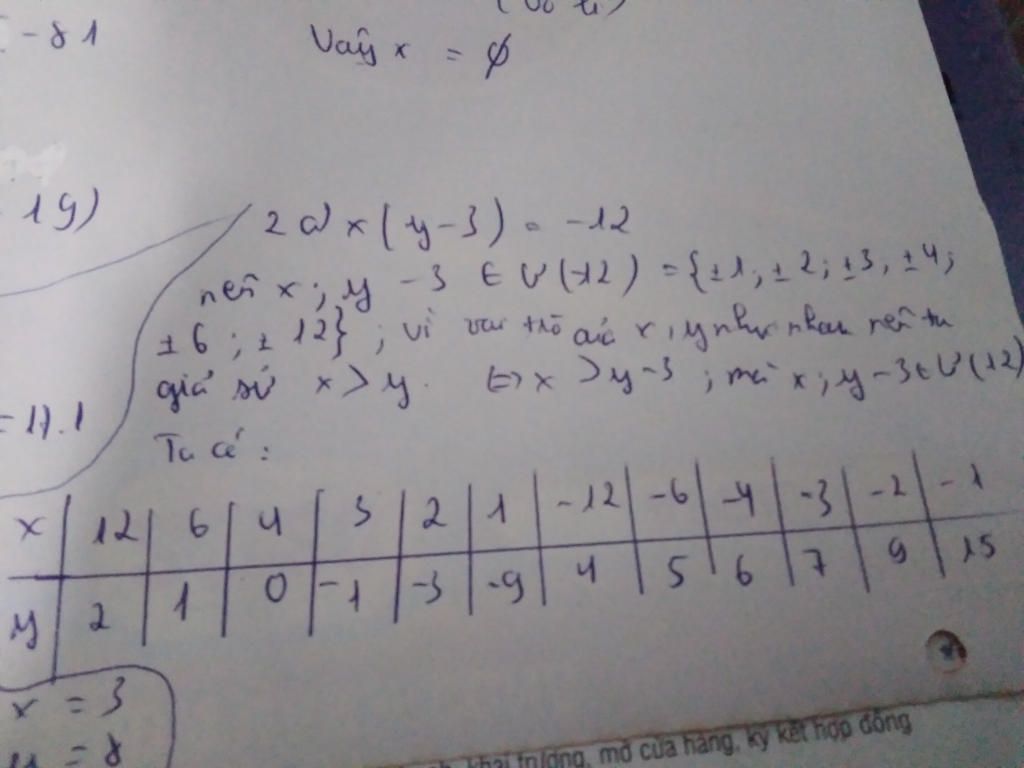 - 81
Vậy x = ϕ
19)
2 a) x(y-3) = -12
nên x; y - 3 ∈ Ư(-12) = {±1; ±2; ±3, ±4;
±6; ±12}; vì vai trò của x, y như nhau nên ta
giả sử x > y. <=> x > y-3; mà x; y-3 ∈ Ư(12)
= 17.1
Ta có:
x | 12 | 6 | 4 | 3 | 2 | 1 | -12 | -6 | -4 | -3 | -2 | -1
y | 2 | 1 | 0 | -1 | -3 | -9 | 4 | 5 | 6 | 7 | 9 | 15
x = 3
= 8
khai trương, mở cửa hàng, ký kết hợp đồng